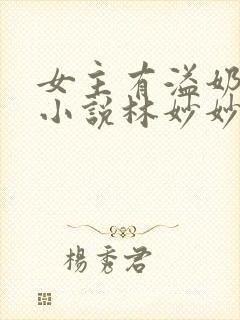 女主有溢奶
小说林妙妙
杨秀君